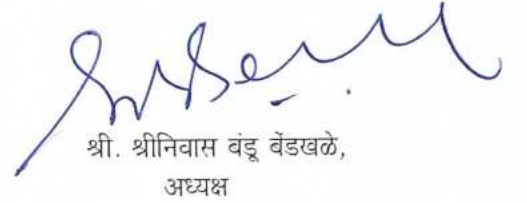 श्री. श्रीनिवास बंडू बेंडखळे,
अध्यक्ष